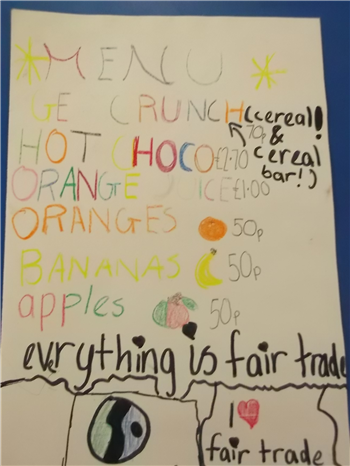 MENU
GE CRUNCH (cereal!
70p & cereal bar!)
HOT CHOCO £1.70
ORANGE JUICE £1.00
ORANGES 50p
BANANAS 50p
apples 50p
everything is fair trade
I
fair trade